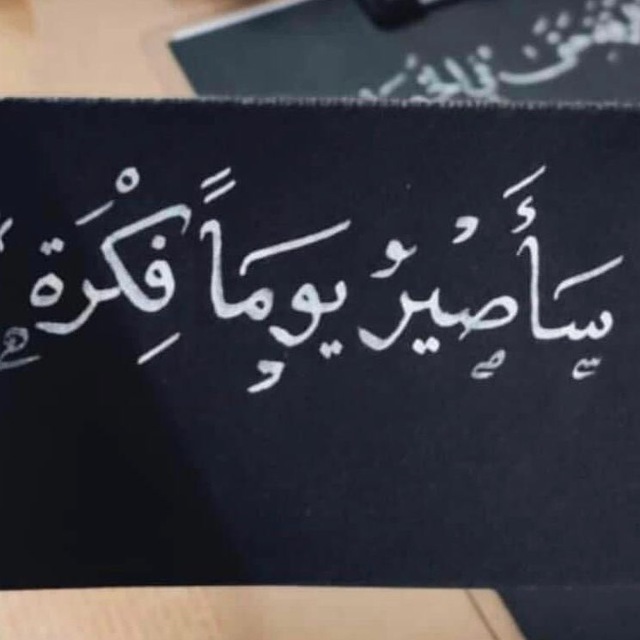 سَأَصِيْرُ يومًا فِكْرَة